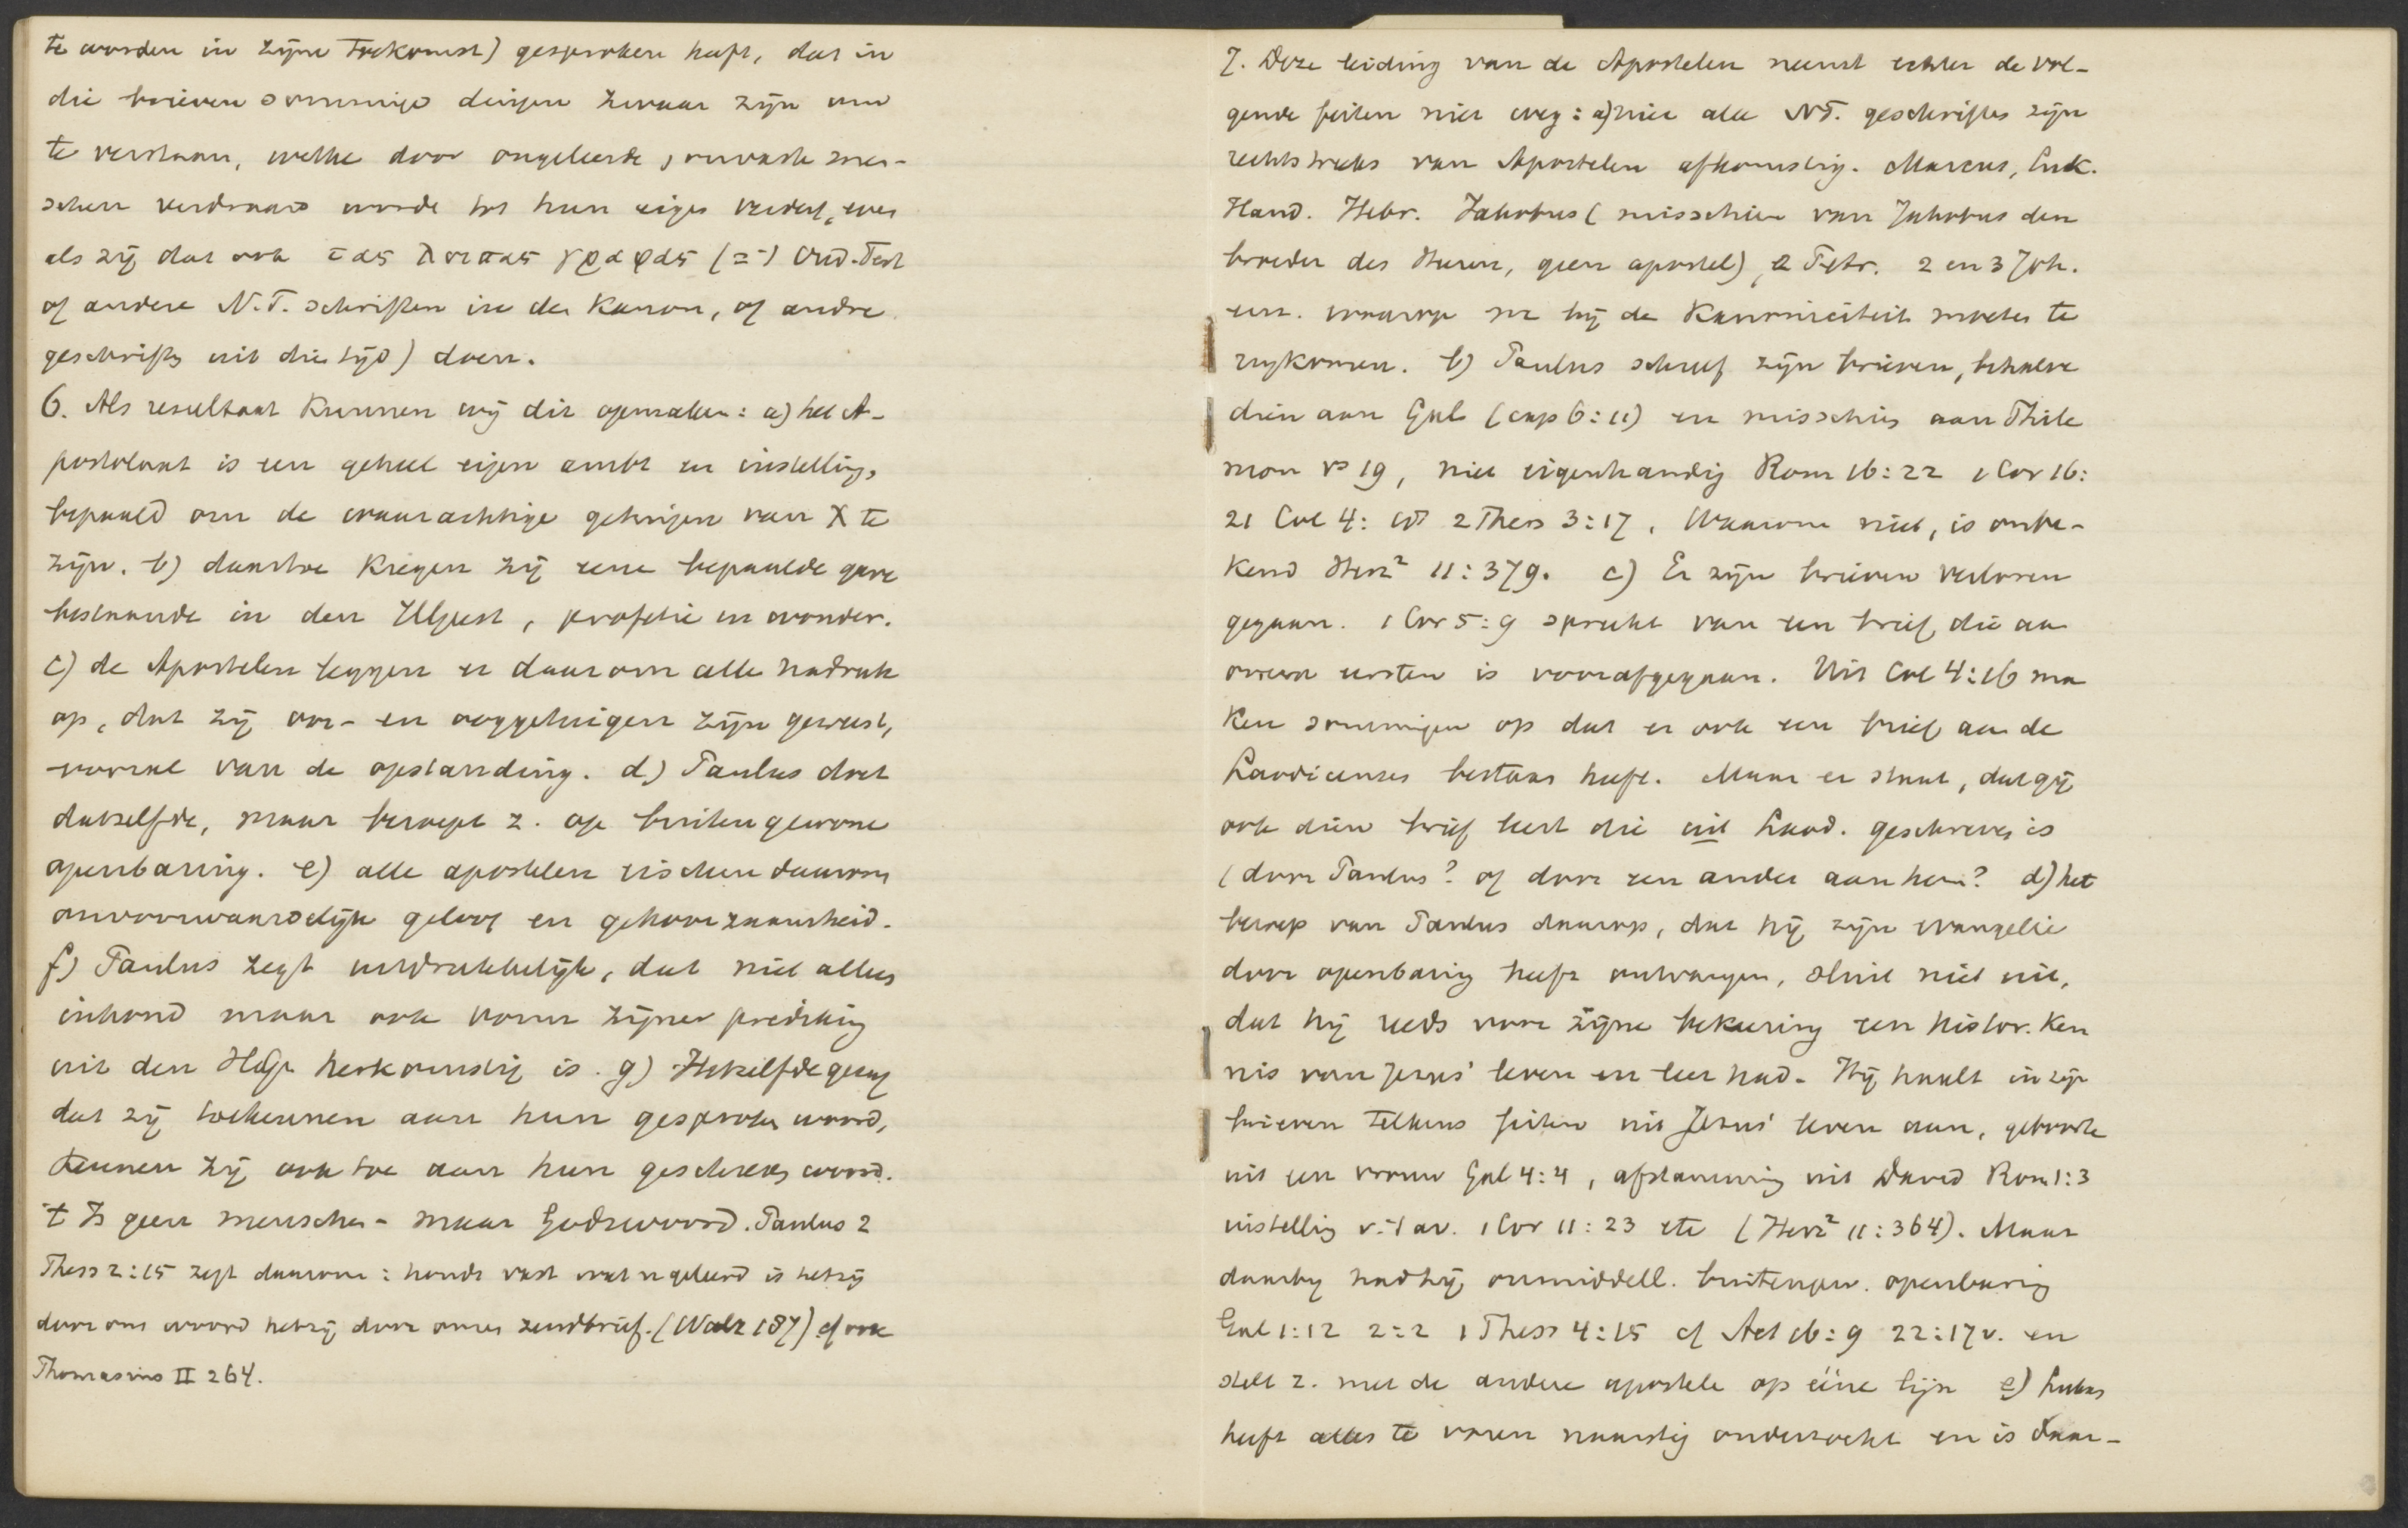 te worden in zijne toekomst) gesproken heeft, dat in
die brieven sommige dingen zwaar zijn om
te verstaan, welke door ongeleerde, onvaste men-
schen verdraaid worde tot hun eigen verderf, even
als zij dat ook τας λοιπας γραφας (=) Oud-Test
of andere N.T. schriften in de Kanon, of andre
geschriften uit die tijd) doen.
6. Als resultaat kunnen wij dit opmaken: a) het A-
postolaat is een geheel eigen ambt en instelling,
bepaald om de waarachtige getuigen van X te
zijn. b) daartoe kregen zij eene bepaalde gave
bestaande in den HGeest, profetie en wonder.
c) de Apostelen leggen er daarom alle nadruk
op, dat zij oor- en ooggetuigen zijn geweest,
vooral van de opstanding. d) Paulus doet
datzelfde, maar beroept z. op buitengewone
openbaring. e) alle apostelen eischen daarom
onvoorwaardelijk geloof en gehoorzaamheid.
f) Paulus zegt uitdrukkelijk, dat niet alleen
inhoud maar ook vorm zijner prediking
uit den HG herkomstig is. g) Hetzelfde gezag
dat zij toekennen aan hun gesproken woord,
kennen zij ook toe aan hun geschreven woord.
't Is geen menschen- maar Godswoord. Paulus 2
Thess 2:15 zegt daarom: houdt vast wat u geleerd is hetzij
door ons woord hetzij door onzen zendbrief. (Walz 187) cf ook
Thomasius II 264.
7. Deze leiding van de Apostelen neemt echter de vol-
gende feiten niet weg: a) niet alle NT. geschriften zijn
rechtstreeks van Apostelen afkomstig. Marcus, Luk.
Hand. Hebr. Jakobus (misschien van Jakobus den
broeder des Heeren, geen apostel), 2 Petr. 2 en 3 Joh.
enz. waarop we bij de Kanoniciteit moeten te
rugkomen. b) Paulus schreef zijn brieven, behalve
dien aan Gal (cap 6:11) en misschien aan Phile
mon vs 19, niet eigenhandig Rom 16:22 1 Cor 16:
21 Col 4: 18 2 Thess 3:17. Waarom niet, is onbe-
kend Herz² 11:379. c) Er zijn brieven verloren
gegaan. 1 Cor 5:9 spreekt van een brief, die aan
onzen eersten is voorafgegaan. Uit Col 4:16 ma
ken sommigen op dat er ook een brief aan de
Laodicenzen bestaan heeft. Maar er staat, dat gij
ook dien brief leest die uit Laod. geschreven is
(door Paulus? of door een ander aan hem? d) het
beroep van Paulus daarop, dat hij zijn evangelie
door openbaring heeft ontvangen, sluit niet uit,
dat hij reeds voor zijne bekeering een histor. ken
nis van Jezus' leven en leer had. Hij haalt in zijn
brieven telkens feiten uit Jezus' leven aan, geboorte
uit een vrouw Gal 4:4, afstamming uit David Rom 1:3
instelling v. 't av. 1 Cor 11:23 etc (Herz² 11:364). Maar
daarbij had hij onmiddell. buitengew. openbaring
Gal 1:12 2:2 1 Thess 4:15 cf Act 16:9 22:17v. en
stelt z. met de andere apostele op ééne lijn e) Lukas
heeft alles te voren naarstig onderzocht en is daar-